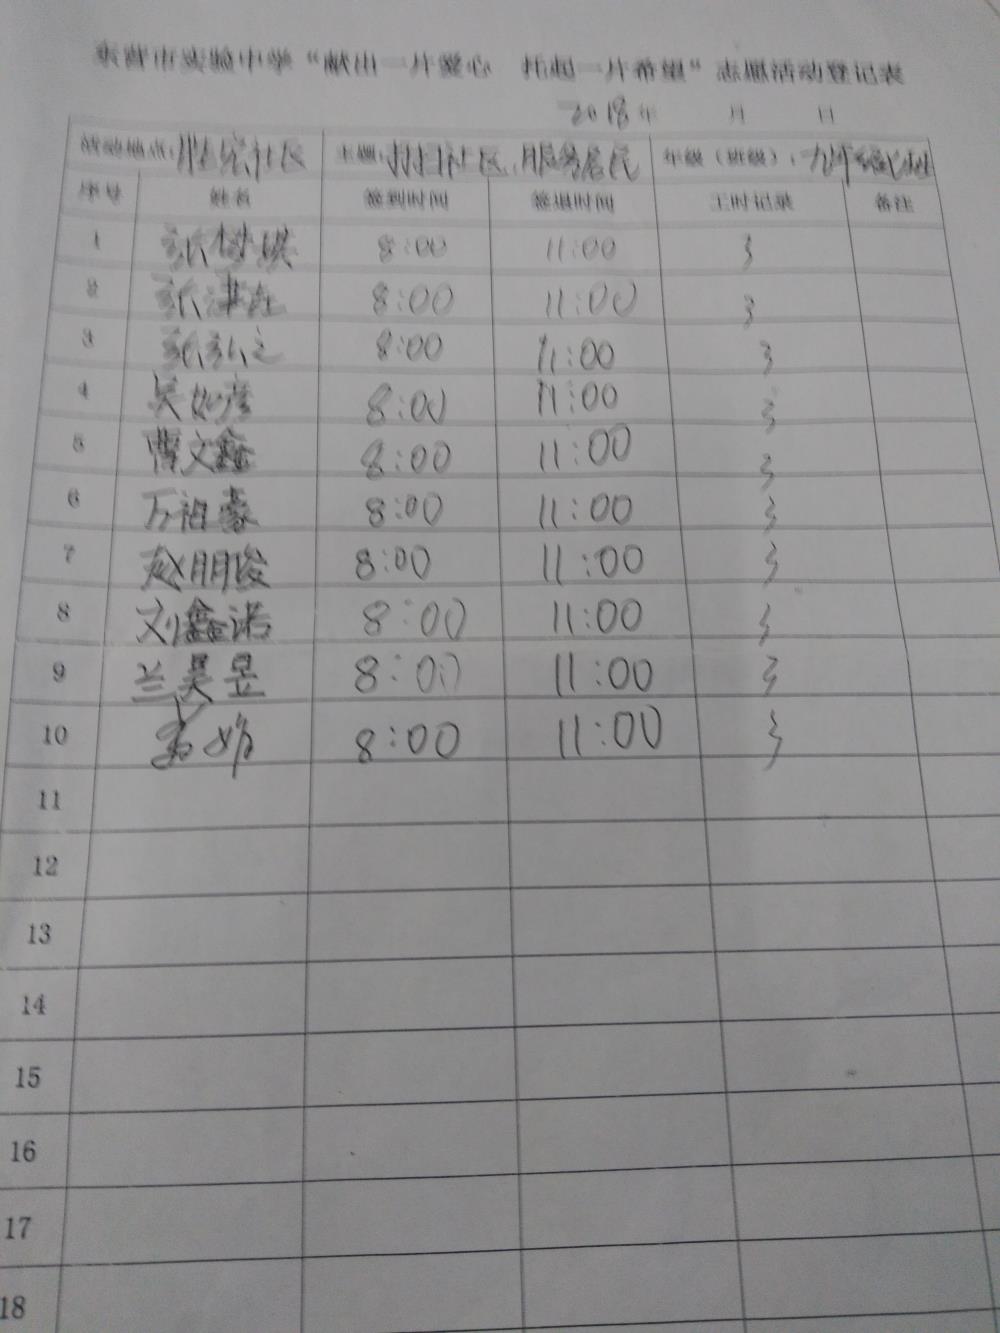 东营市实验中学“献出一片爱心 托起一片希望”志愿活动登记表
2018年 月 日
活动地点：胜宏社区 主题：打扫社区、服务居民 年级（班级）：九年级
序号 姓名 签到时间 签退时间 工时记录 备注
1 张 琪 8:00 11:00 3
2 张津 8:00 11:00 3
3 张弘之 8:00 11:00 3
4 吴如彦 8:00 11:00 3
5 曹文鑫 8:00 11:00 3
6 万祖豪 8:00 11:00 3
7 赵朋俊 8:00 11:00 3
8 刘鑫诺 8:00 11:00 3
9 兰昊昱 8:00 11:00 3
10 8:00 11:00 3
11
12
13
14
15
16
17
18